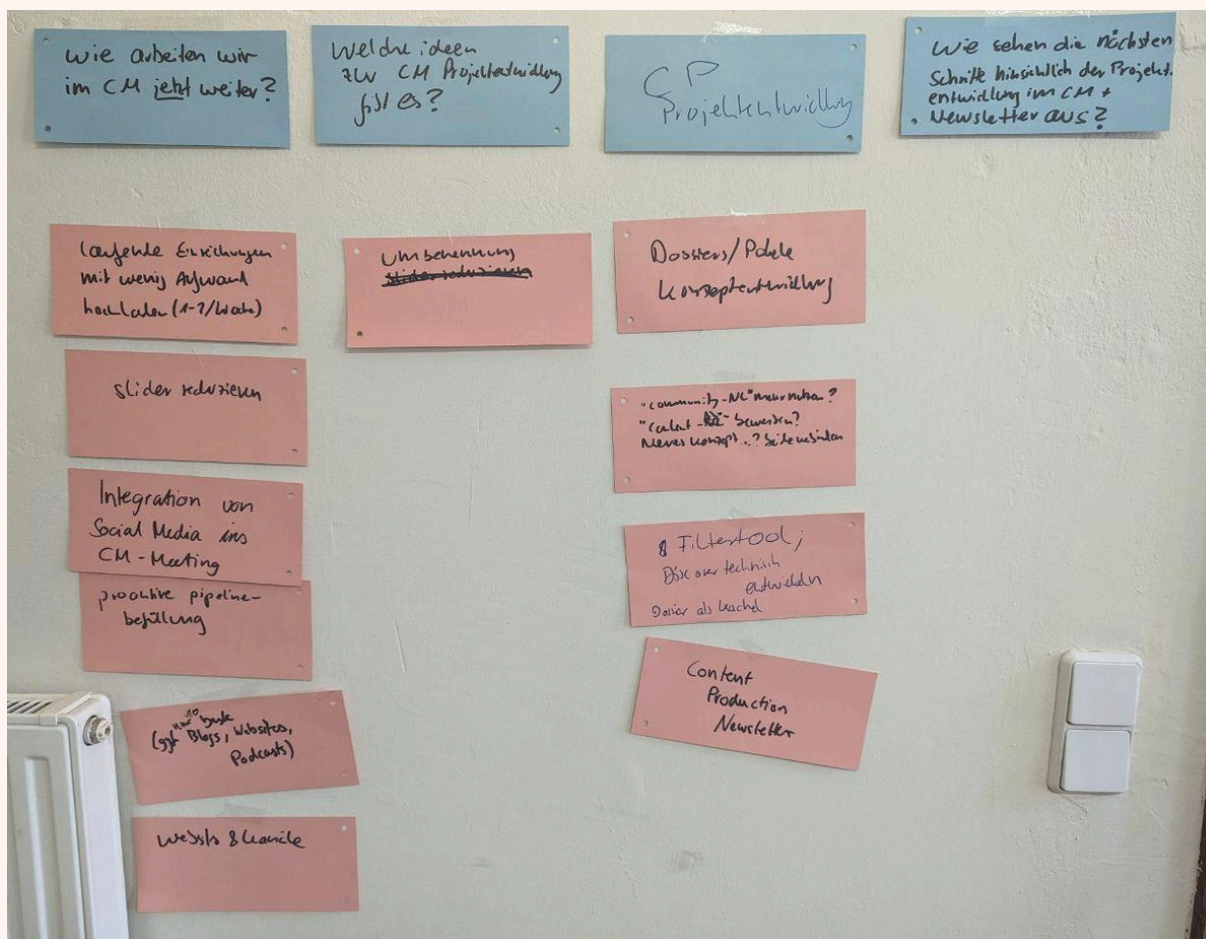 wie arbeiten wir
im CM jetzt weiter?
Welche ideen
zur CM Projektentwicklung
gibt es?
CP
Projektentwicklung
Wie sehen die nächsten
Schritte hinsichtlich der Projekt.
entwicklung im CM +
Newsletter aus?
laufende Einreichungen
mit wenig Aufwand
hochladen (1-2/Woche)
slider reduzieren
Integration von
Social Media ins
CM-Meeting
proaktive pipeline-
befüllung
nur 10
(ggf. Blogs, Websites,
Podcasts)
Umbenennung
slider reduzieren
Dossiers/Pakete
Konzeptentwicklung
"community-NL" mehr nutzen?
"Content-NL" bewerben?
Neues Konzept..?
Filtertool;
technisch
entwickeln
Dossier als Kachel
Content
Production
Newsletter